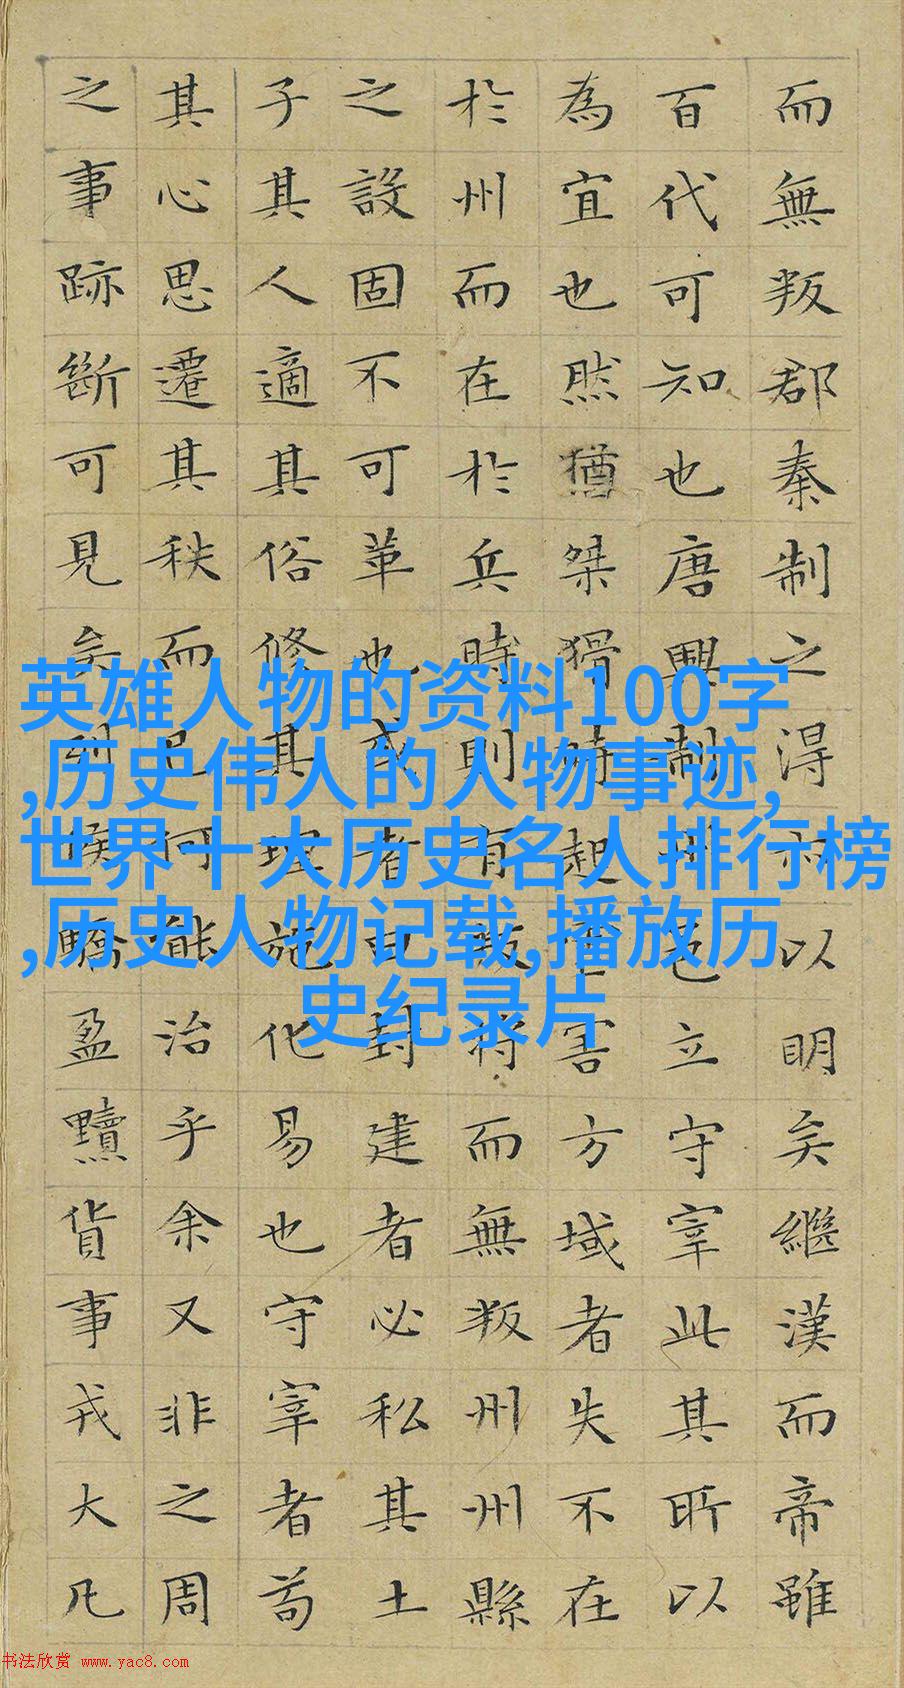 而無叛郡秦制之得亦以明矣繼漢而帝雖
百代可知也唐興制州邑立守宰此其所以
為宜也然猶桀猾時起虐害方域者失不在
於州而在於兵時則有叛將而無叛州州縣
之設固不可革也或者曰封建者必私其土
子其人適其俗修其理施化易也守宰者苟
其心思遷其秩而已何能治乎余又非之周
之事跡斷可見矣列侯驕盈黷貨事戎大凡
英雄人物的资料100字
,历史伟人的人物事迹,
世界十大历史名人排行榜
,历史人物记载,播放历
史纪录片
书法欣赏 www.yac8.com